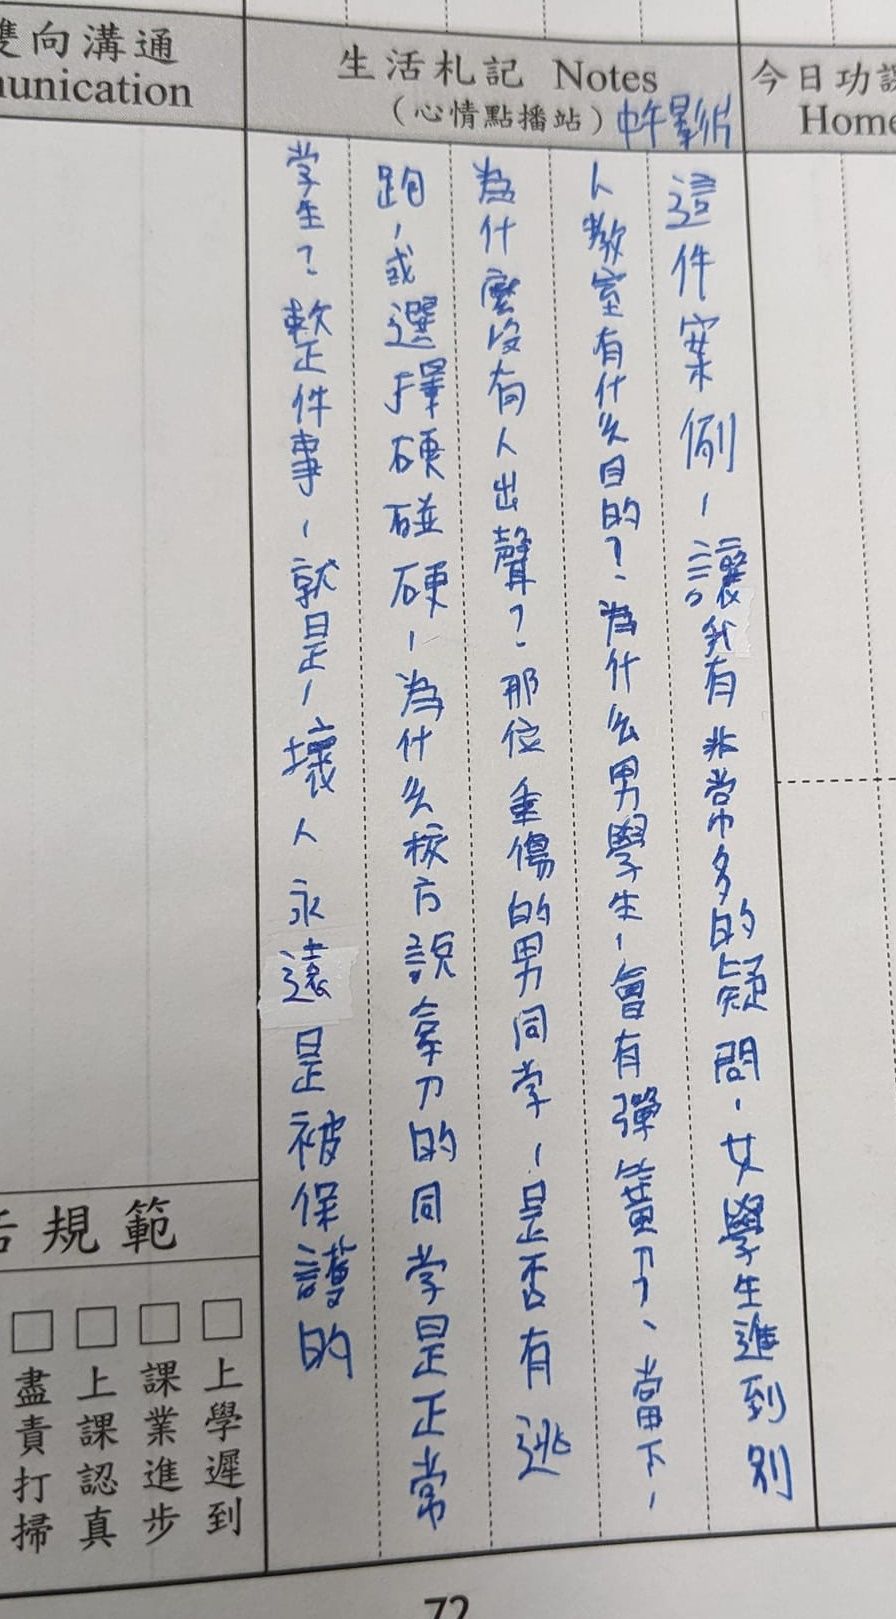 雙向溝通
unication
生活札記 Notes
(心情點播站)
影片
今日功課
Home
這件案例，讓我有非常多的疑問，女學生進到別
人教室有什么目的？為什么男學生，會有彈簧刀、當下，
為什麼沒有人出聲？那位重傷的男同学，是否有逃
跑，或選擇硬碰硬，為什么校方說拿刀的同学是正常
学生？整件事，就是，壞人永遠是被保護的
活規範
□上學遲到
□課業進步
□上課認真
□盡責打掃
72